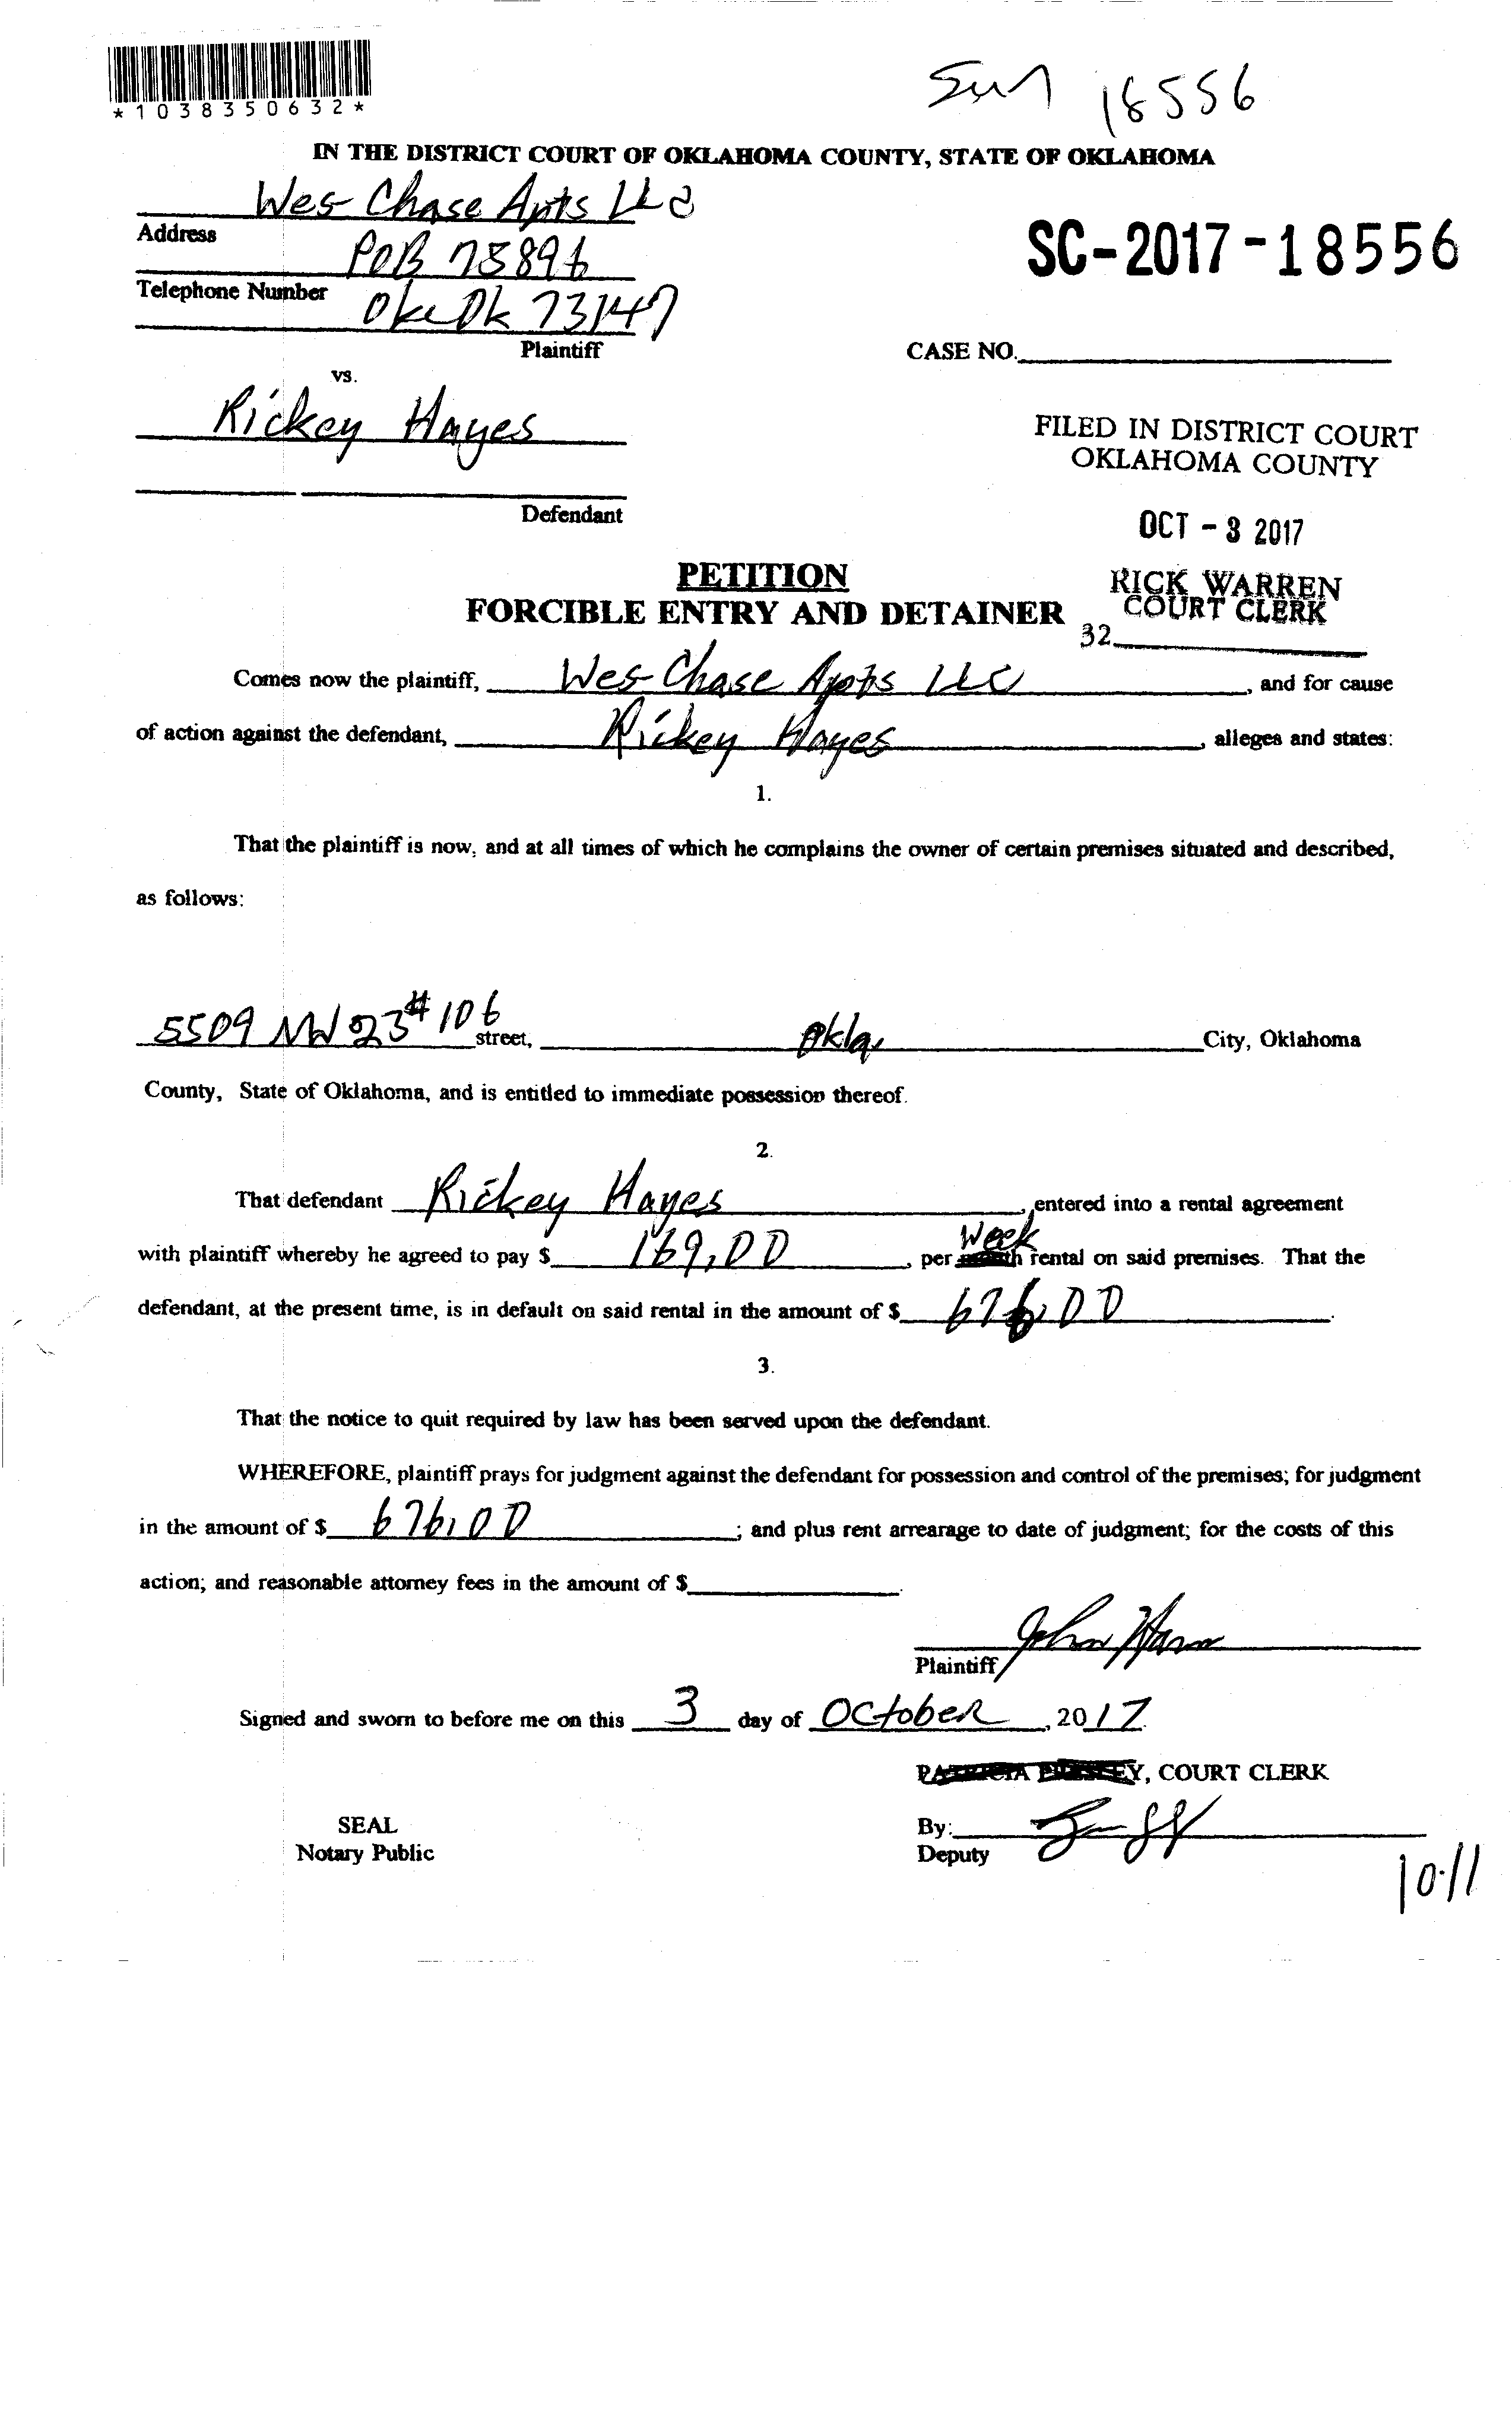 *1038350632*
18556
IN THE DISTRICT COURT OF OKLAHOMA COUNTY, STATE OF OKLAHOMA
Wes Chase Apts LLC
Address
POB 75896
SC-2017-18556
Telephone Number
Okc Ok 73147
Plaintiff
CASE NO.
vs.
Rickey Hayes
FILED IN DISTRICT COURT
OKLAHOMA COUNTY
Defendant
OCT - 3 2017
PETITION
RICK WARREN
FORCIBLE ENTRY AND DETAINER
COURT CLERK
32
Comes now the plaintiff, Wes Chase Apts LLC, and for cause
of action against the defendant, Rickey Hayes, alleges and states:
1.
That the plaintiff is now, and at all times of which he complains the owner of certain premises situated and described,
as follows:
5509 NW 23 #106 street, Okla, City, Oklahoma
County, State of Oklahoma, and is entitled to immediate possession thereof.
2.
That defendant Rickey Hayes, entered into a rental agreement
with plaintiff whereby he agreed to pay $ 169.00, per Week rental on said premises. That the
defendant, at the present time, is in default on said rental in the amount of $ 676.00.
3.
That the notice to quit required by law has been served upon the defendant.
WHEREFORE, plaintiff prays for judgment against the defendant for possession and control of the premises; for judgment
in the amount of $ 676.00; and plus rent arrearage to date of judgment; for the costs of this
action; and reasonable attorney fees in the amount of $.
Plaintiff
Signed and sworn to before me on this 3 day of October, 2017.
COURT CLERK
SEAL
By:
Notary Public
Deputy
10-11